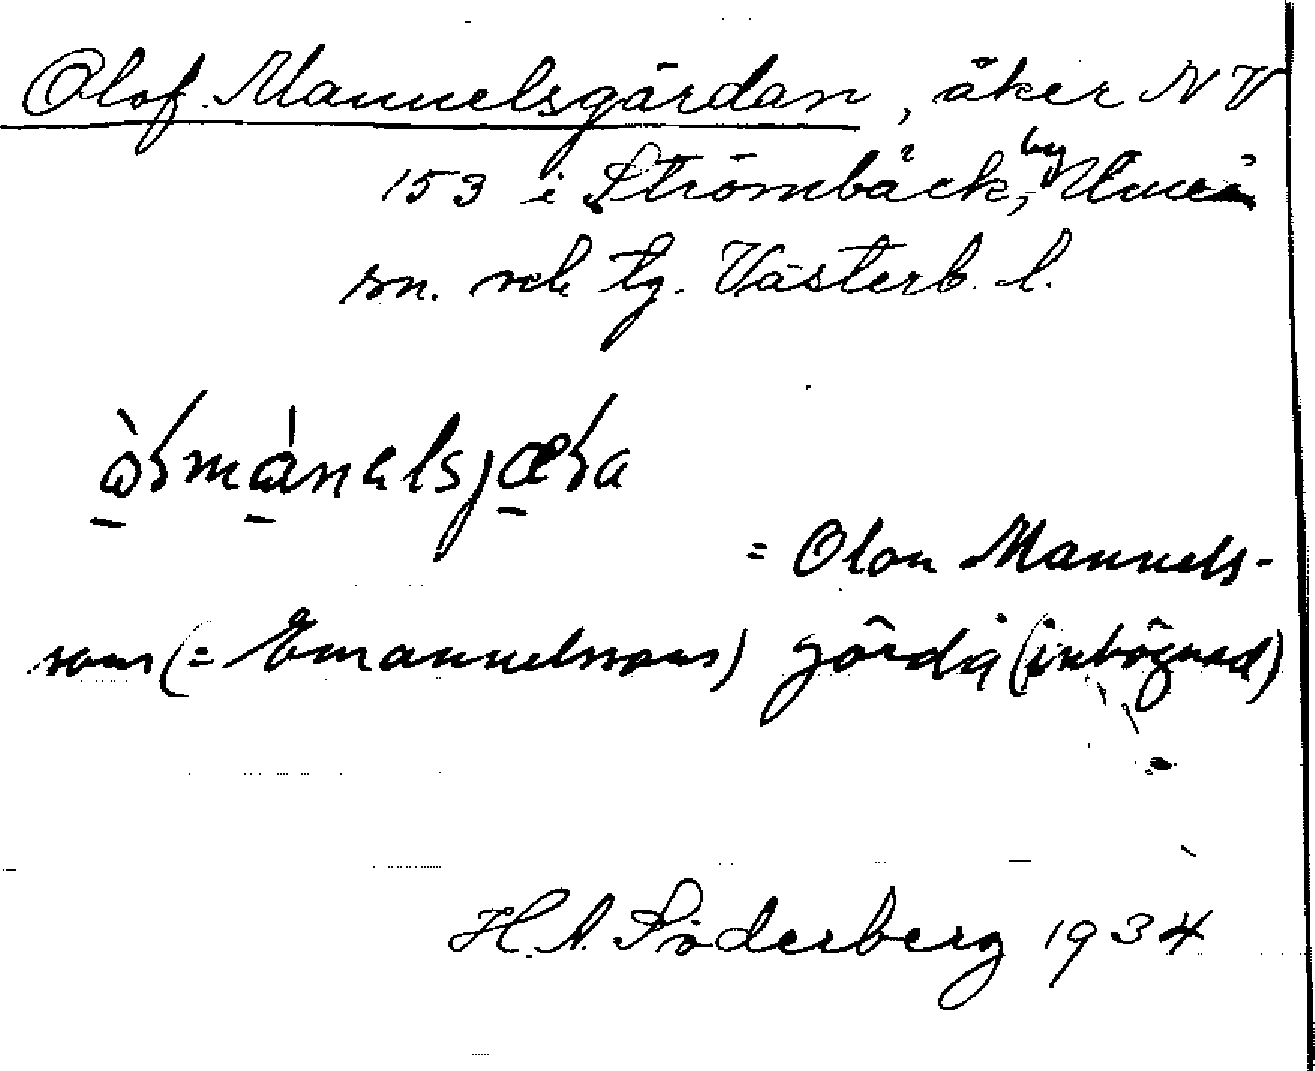 Olof Mannelsgärdan, åker NV
153 i Strömbäck, by Umeå
sn. och tg. Västerb. l.
= Olou Mannels-
sons (= Emanuelssons) gärda (inhägnad)
H. N. Söderberg 1934